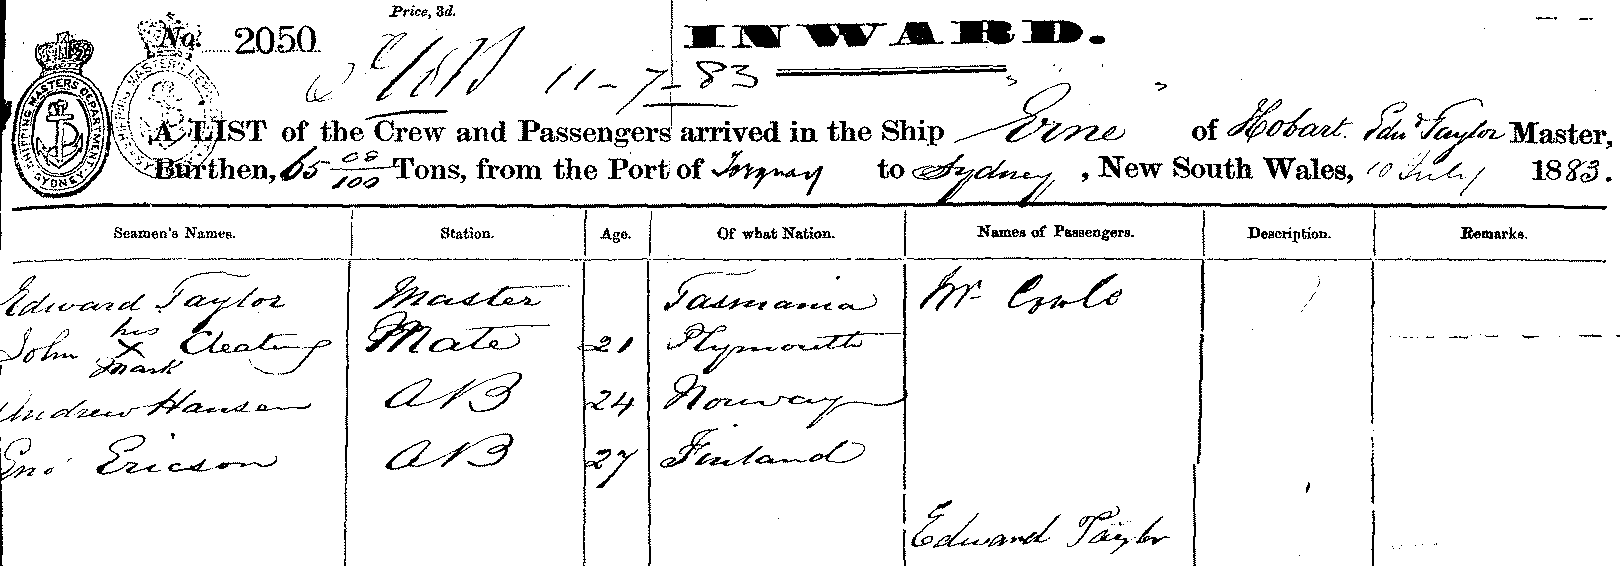 Price, 3d.
No. 2050
INWARD.
11-7-83
SHIPPING MASTERS DEPARTMENT. SYDNEY.
A LIST of the Crew and Passengers arrived in the Ship Erne of Hobart. Edwd Taylor Master,
Burthen, 65 08/100 Tons, from the Port of Torquay to Sydney, New South Wales, 10 July 1883.
Seamen's Names. Station. Age. Of what Nation. Names of Passengers. Description. Remarks.
Edward Taylor Master Tasmania Mr
his
John X Mate 21 Plymouth
mark
Andrew Hansen AB 24 Norway
Ericson AB 27 Finland
Edward Taylor